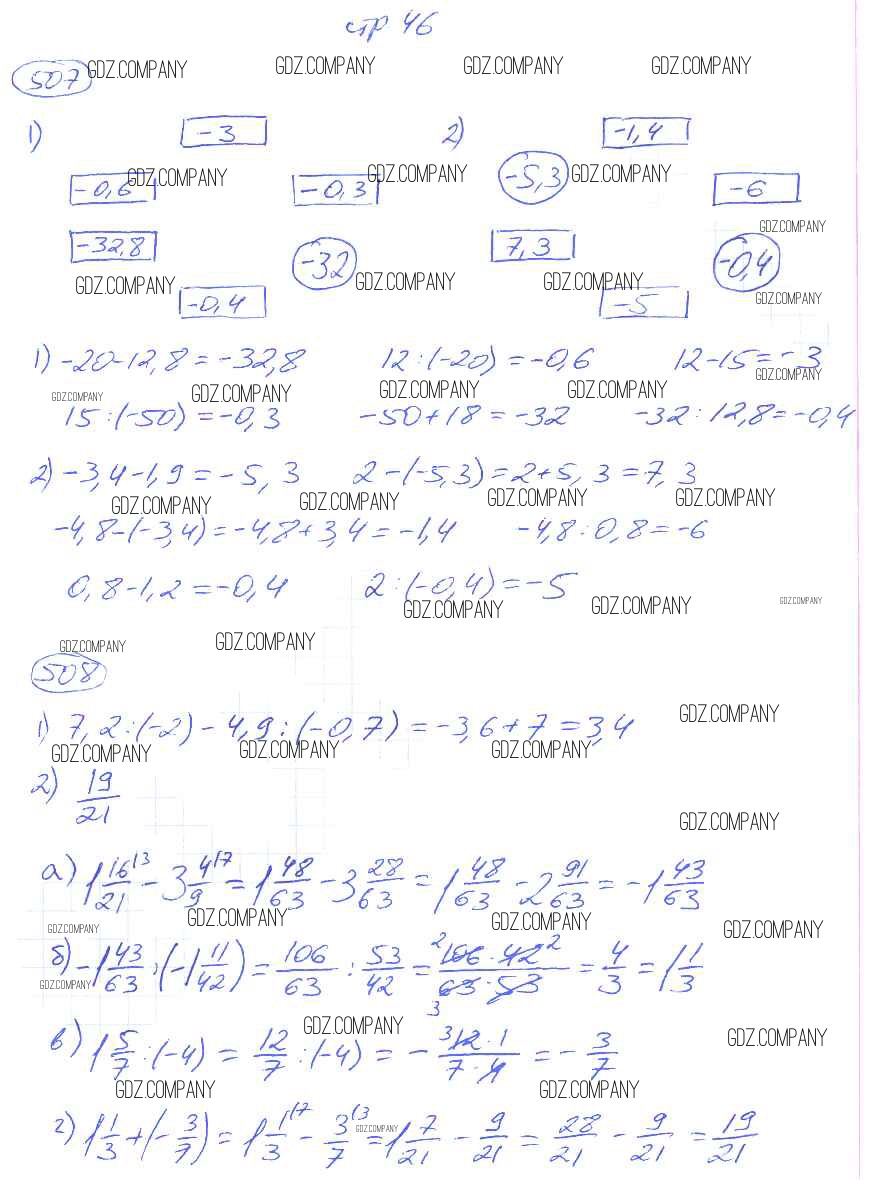 стр 46
507 GDZ.COMPANY GDZ.COMPANY GDZ.COMPANY GDZ.COMPANY
1) -3 2) -1,4
-0,6 GDZ.COMPANY -0,3 GDZ.COMPANY -5,3 GDZ.COMPANY -6
GDZ.COMPANY
-32,8 -32 7,3 -0,4
GDZ.COMPANY GDZ.COMPANY GDZ.COMPANY
-0,4 -5 GDZ.COMPANY
1) -20-12,8=-32,8 12:(-20)=-0,6 12-15=-3
GDZ.COMPANY GDZ.COMPANY GDZ.COMPANY GDZ.COMPANY GDZ.COMPANY
15:(-50)=-0,3 -50+18=-32 -32:12,8=-0,4
2) -3,4-1,9=-5,3 2-(-5,3)=2+5,3=7,3
GDZ.COMPANY GDZ.COMPANY GDZ.COMPANY GDZ.COMPANY
-4,8-(-3,4)=-4,8+3,4=-1,4 -4,8:0,8=-6
0,8-1,2=-0,4 2:(-0,4)=-5
GDZ.COMPANY GDZ.COMPANY GDZ.COMPANY
GDZ.COMPANY GDZ.COMPANY
508
GDZ.COMPANY
1) 7,2:(-2)-4,9:(-0,7)=-3,6+7=3,4
GDZ.COMPANY GDZ.COMPANY GDZ.COMPANY
2) 19/21
GDZ.COMPANY
а) 1 16/21 (3 - 3 4/9 (7 = 1 48/63 - 3 28/63 = 1 48/63 - 2 91/63 = -1 43/63
GDZ.COMPANY GDZ.COMPANY GDZ.COMPANY GDZ.COMPANY
б) -1 43/63 : (-1 11/42) = 106/63 : 53/42 = 2 106·42 2/63·53 3 = 4/3 = 1 1/3
GDZ.COMPANY
GDZ.COMPANY GDZ.COMPANY
в) 1 5/7 : (-4) = 12/7 : (-4) = - 3 12·1/7·4 = - 3/7
GDZ.COMPANY GDZ.COMPANY
г) 1 1/3 + (- 3/7) = 1 1/3 (7 - 3/7 (3 = 1 7/21 - 9/21 = 28/21 - 9/21 = 19/21
GDZ.COMPANY